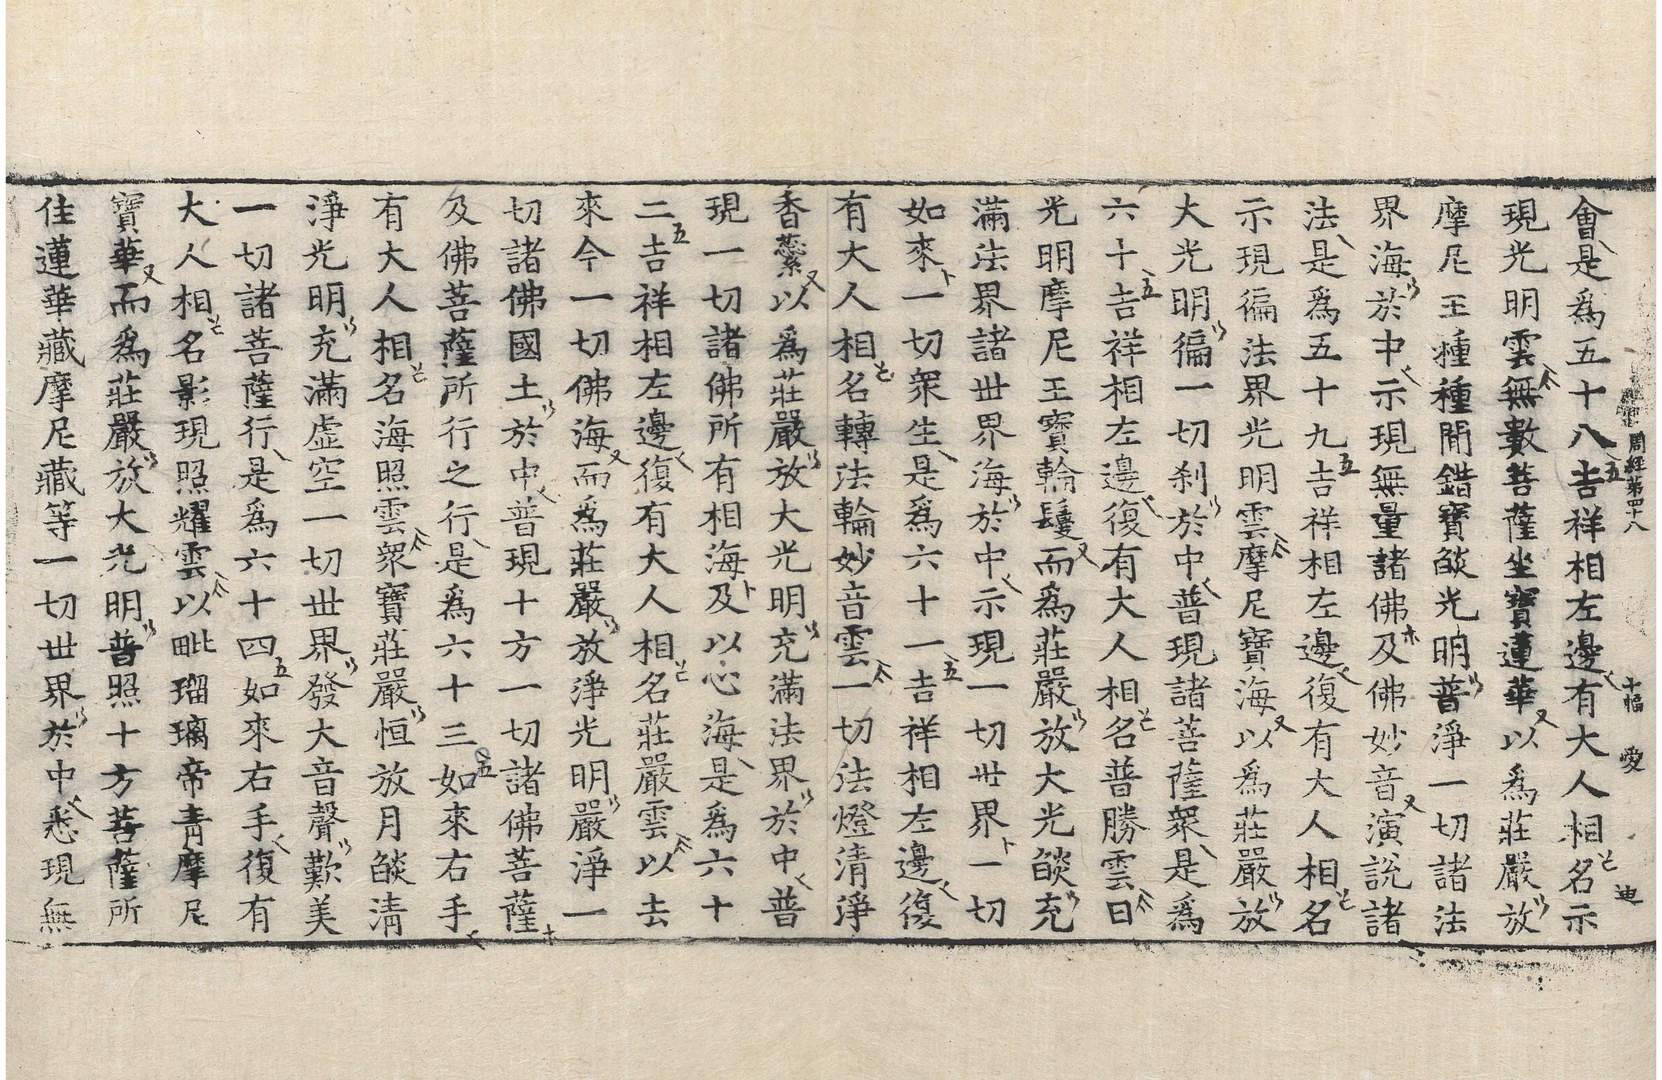 周經第四十八 十幅 愛 迪
會是爲五十八吉祥相左邊有大人相名示
現光明雲無數菩薩坐寶蓮華以爲莊嚴放
摩尼王種種閒錯寶燄光明普淨一切諸法
界海於中示現無量諸佛及佛妙音演說諸
法是爲五十九吉祥相左邊復有大人相名
示現徧法界光明雲摩尼寶海以爲莊嚴放
大光明徧一切刹於中普現諸菩薩衆是爲
六十吉祥相左邊復有大人相名普勝雲日
光明摩尼王寶輪鬘而爲莊嚴放大光燄充
滿法界諸世界海於中示現一切世界一切
如來一切衆生是爲六十一吉祥相左邊復
有大人相名轉法輪妙音雲一切法燈清淨
香蘂以爲莊嚴放大光明充滿法界於中普
現一切諸佛所有相海及以心海是爲六十
二吉祥相左邊復有大人相名莊嚴雲以去
來今一切佛海而爲莊嚴放淨光明嚴淨一
切諸佛國土於中普現十方一切諸佛菩薩
及佛菩薩所行之行是爲六十三如來右手
有大人相名海照雲衆寶莊嚴恒放月燄淸
淨光明充滿虛空一切世界發大音聲歎美
一切諸菩薩行是爲六十四如來右手復有
大人相名影現照耀雲以毗瑠璃帝靑摩尼
寶華而爲莊嚴放大光明普照十方菩薩所
住蓮華藏摩尼藏等一切世界於中悉現無